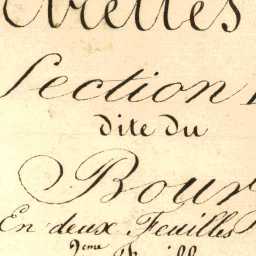 Section
dite du
Bour
En deux Feuilles
2eme